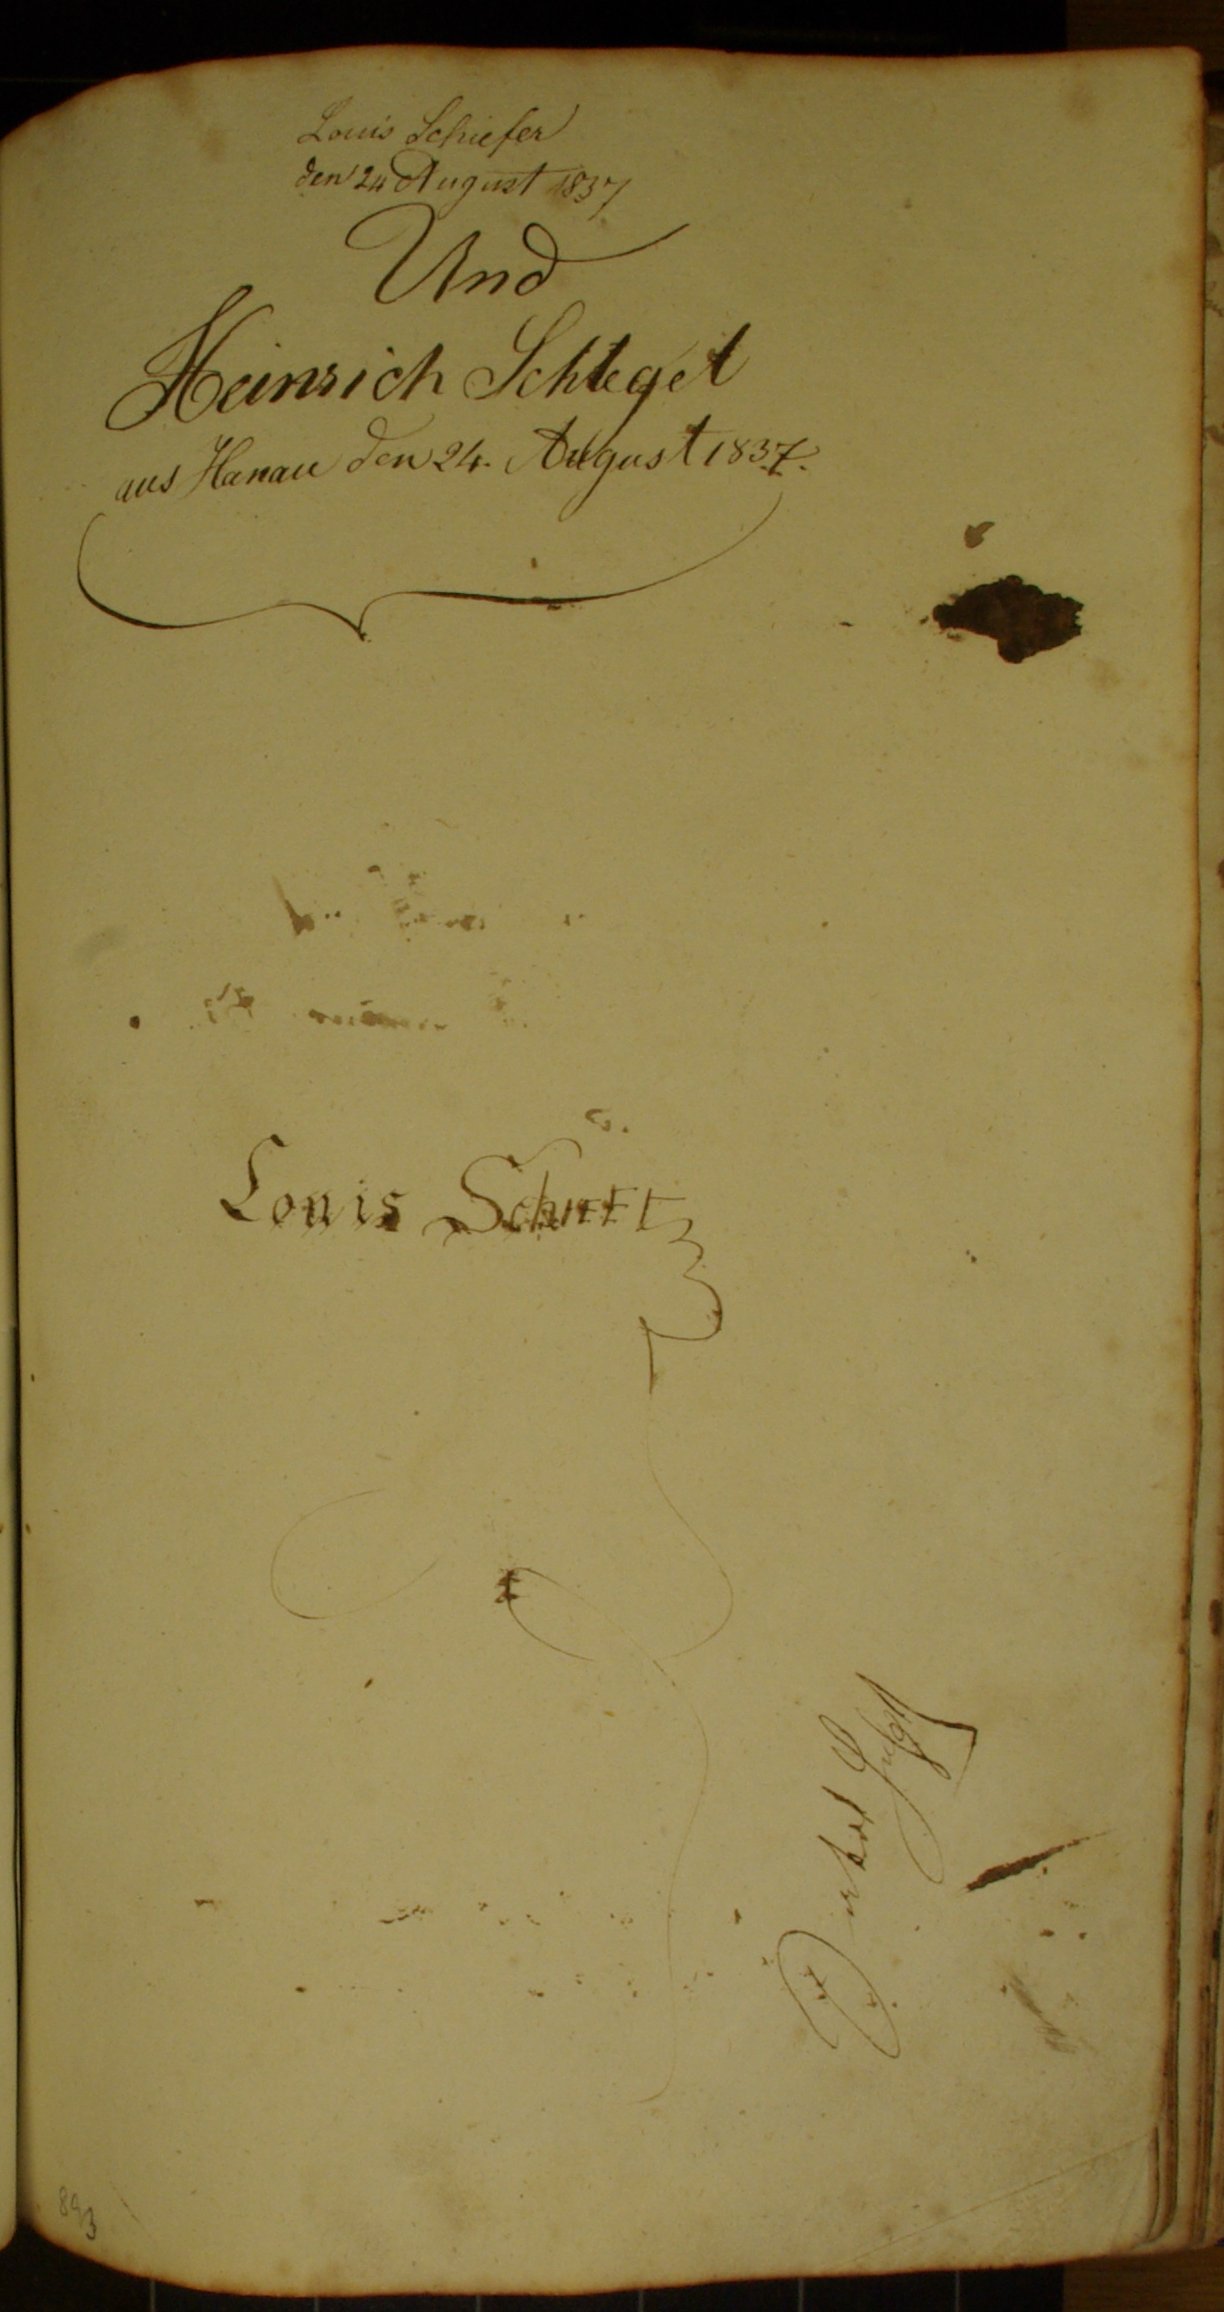 Louis Schiefer
den 24 August 1837
Und
Heinrich Schlegel
aus Hanau den 24. August 1837.
Louis Schiefer
893